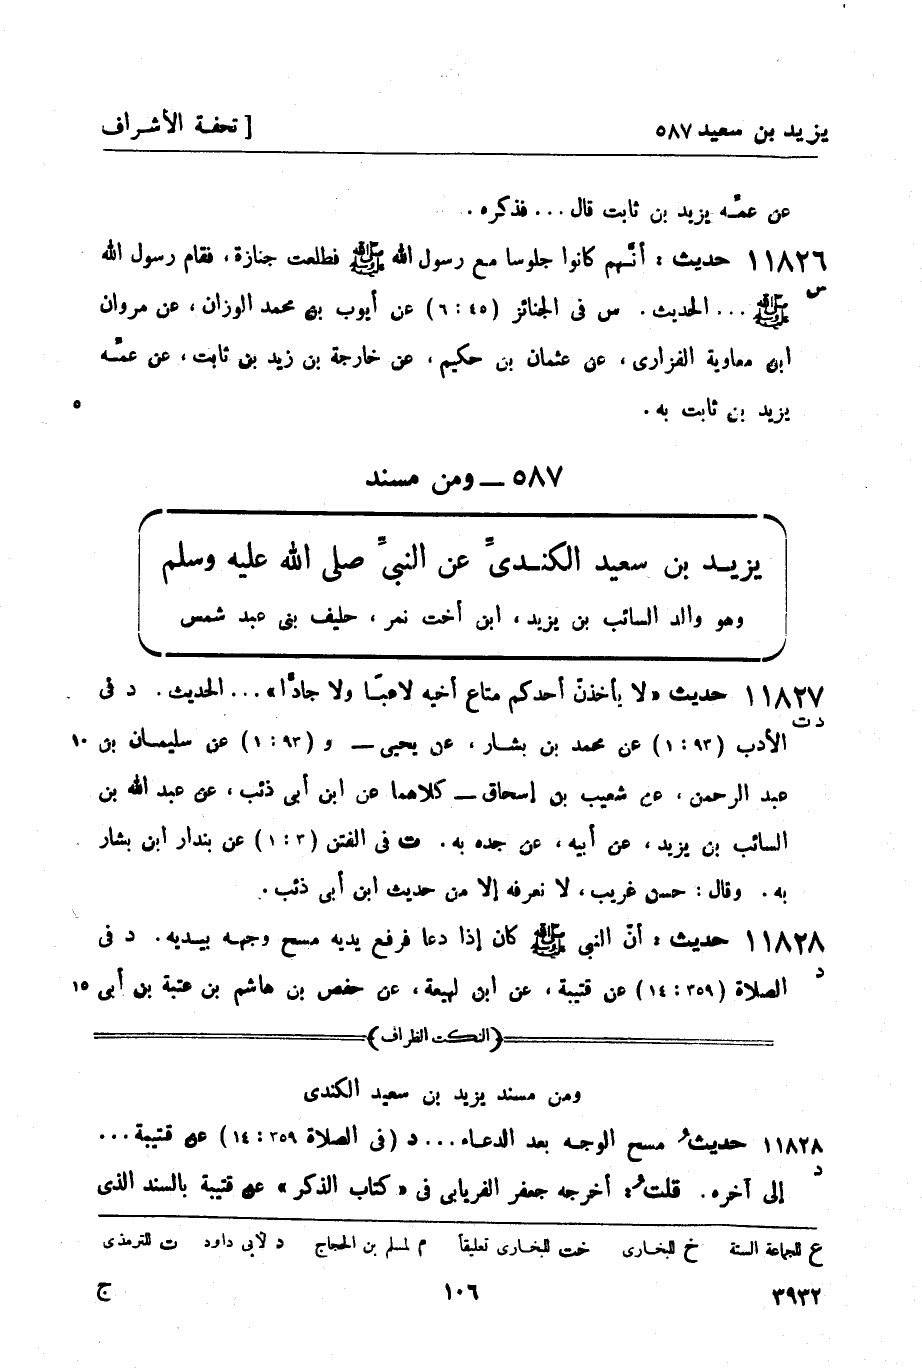 يزيد بن سعيد ٥٨٧ [ تحفة الأشراف
عن عمّه يزيد بن ثابت قال ... فذكره .
١١٨٢٦ حديث : أنّهم كانوا جلوسا مع رسول الله ﷺ فطلعت جنازة ، فقام رسول الله
س
ﷺ ... الحديث . س فى الجنائز (٤٥ : ٦) عن أيوب بن محمد الوزان ، عن مروان
ابن معاوية الفزارى ، عن عثمان بن حكيم ، عن خارجة بن زيد بن ثابت ، عن عمّه
يزيد بن ثابت به . ٥
٥٨٧ — ومن مسند
يزيد بن سعيد الكندىّ عن النبىّ صلى الله عليه وسلم
وهو والد السائب بن يزيد ، ابن أخت نمر ، حليف بنى عبد شمس
١١٨٢٧ حديث «لا يأخذنّ أحدكم متاع أخيه لاعبًا ولا جادًّا» ... الحديث . د فى
د ت
الأدب (٩٣ : ١) عن محمد بن بشار ، عن يحيى — و (٩٣ : ١) عن سليمان بن ١٠
عبد الرحمن ، عن شعيب بن إسحاق — كلاهما عن ابن أبى ذئب ، عن عبد الله بن
السائب بن يزيد ، عن أبيه ، عن جده به . ت فى الفتن (٣ : ١) عن بندار ابن بشار
به . وقال : حسن غريب ، لا نعرفه إلا من حديث ابن أبى ذئب .
١١٨٢٨ حديث : أنّ النبى ﷺ كان إذا دعا فرفع يديه مسح وجهه بيديه . د فى
د
الصلاة (٣٥٩ : ١٤) عن قتيبة ، عن ابن لهيعة ، عن حفص بن هاشم بن عتبة بن أبى ١٥
(النكت الظراف)
ومن مسند يزيد بن سعيد الكندى
١١٨٢٨ حديثُ مسح الوجه بعد الدعاء ... د (فى الصلاة ٣٥٩ : ١٤) عن قتيبة ...
د
إلى آخره . قلتُ : أخرجه جعفر الفريابى فى « كتاب الذكر » عن قتيبة بالسند الذى
ع للجماعة الستة خ للبخارى خت للبخارى تعليقاً م لمسلم بن الحجاج د لأبى داود ت للترمذى
٣٩٣٢ ١٠٦ ج